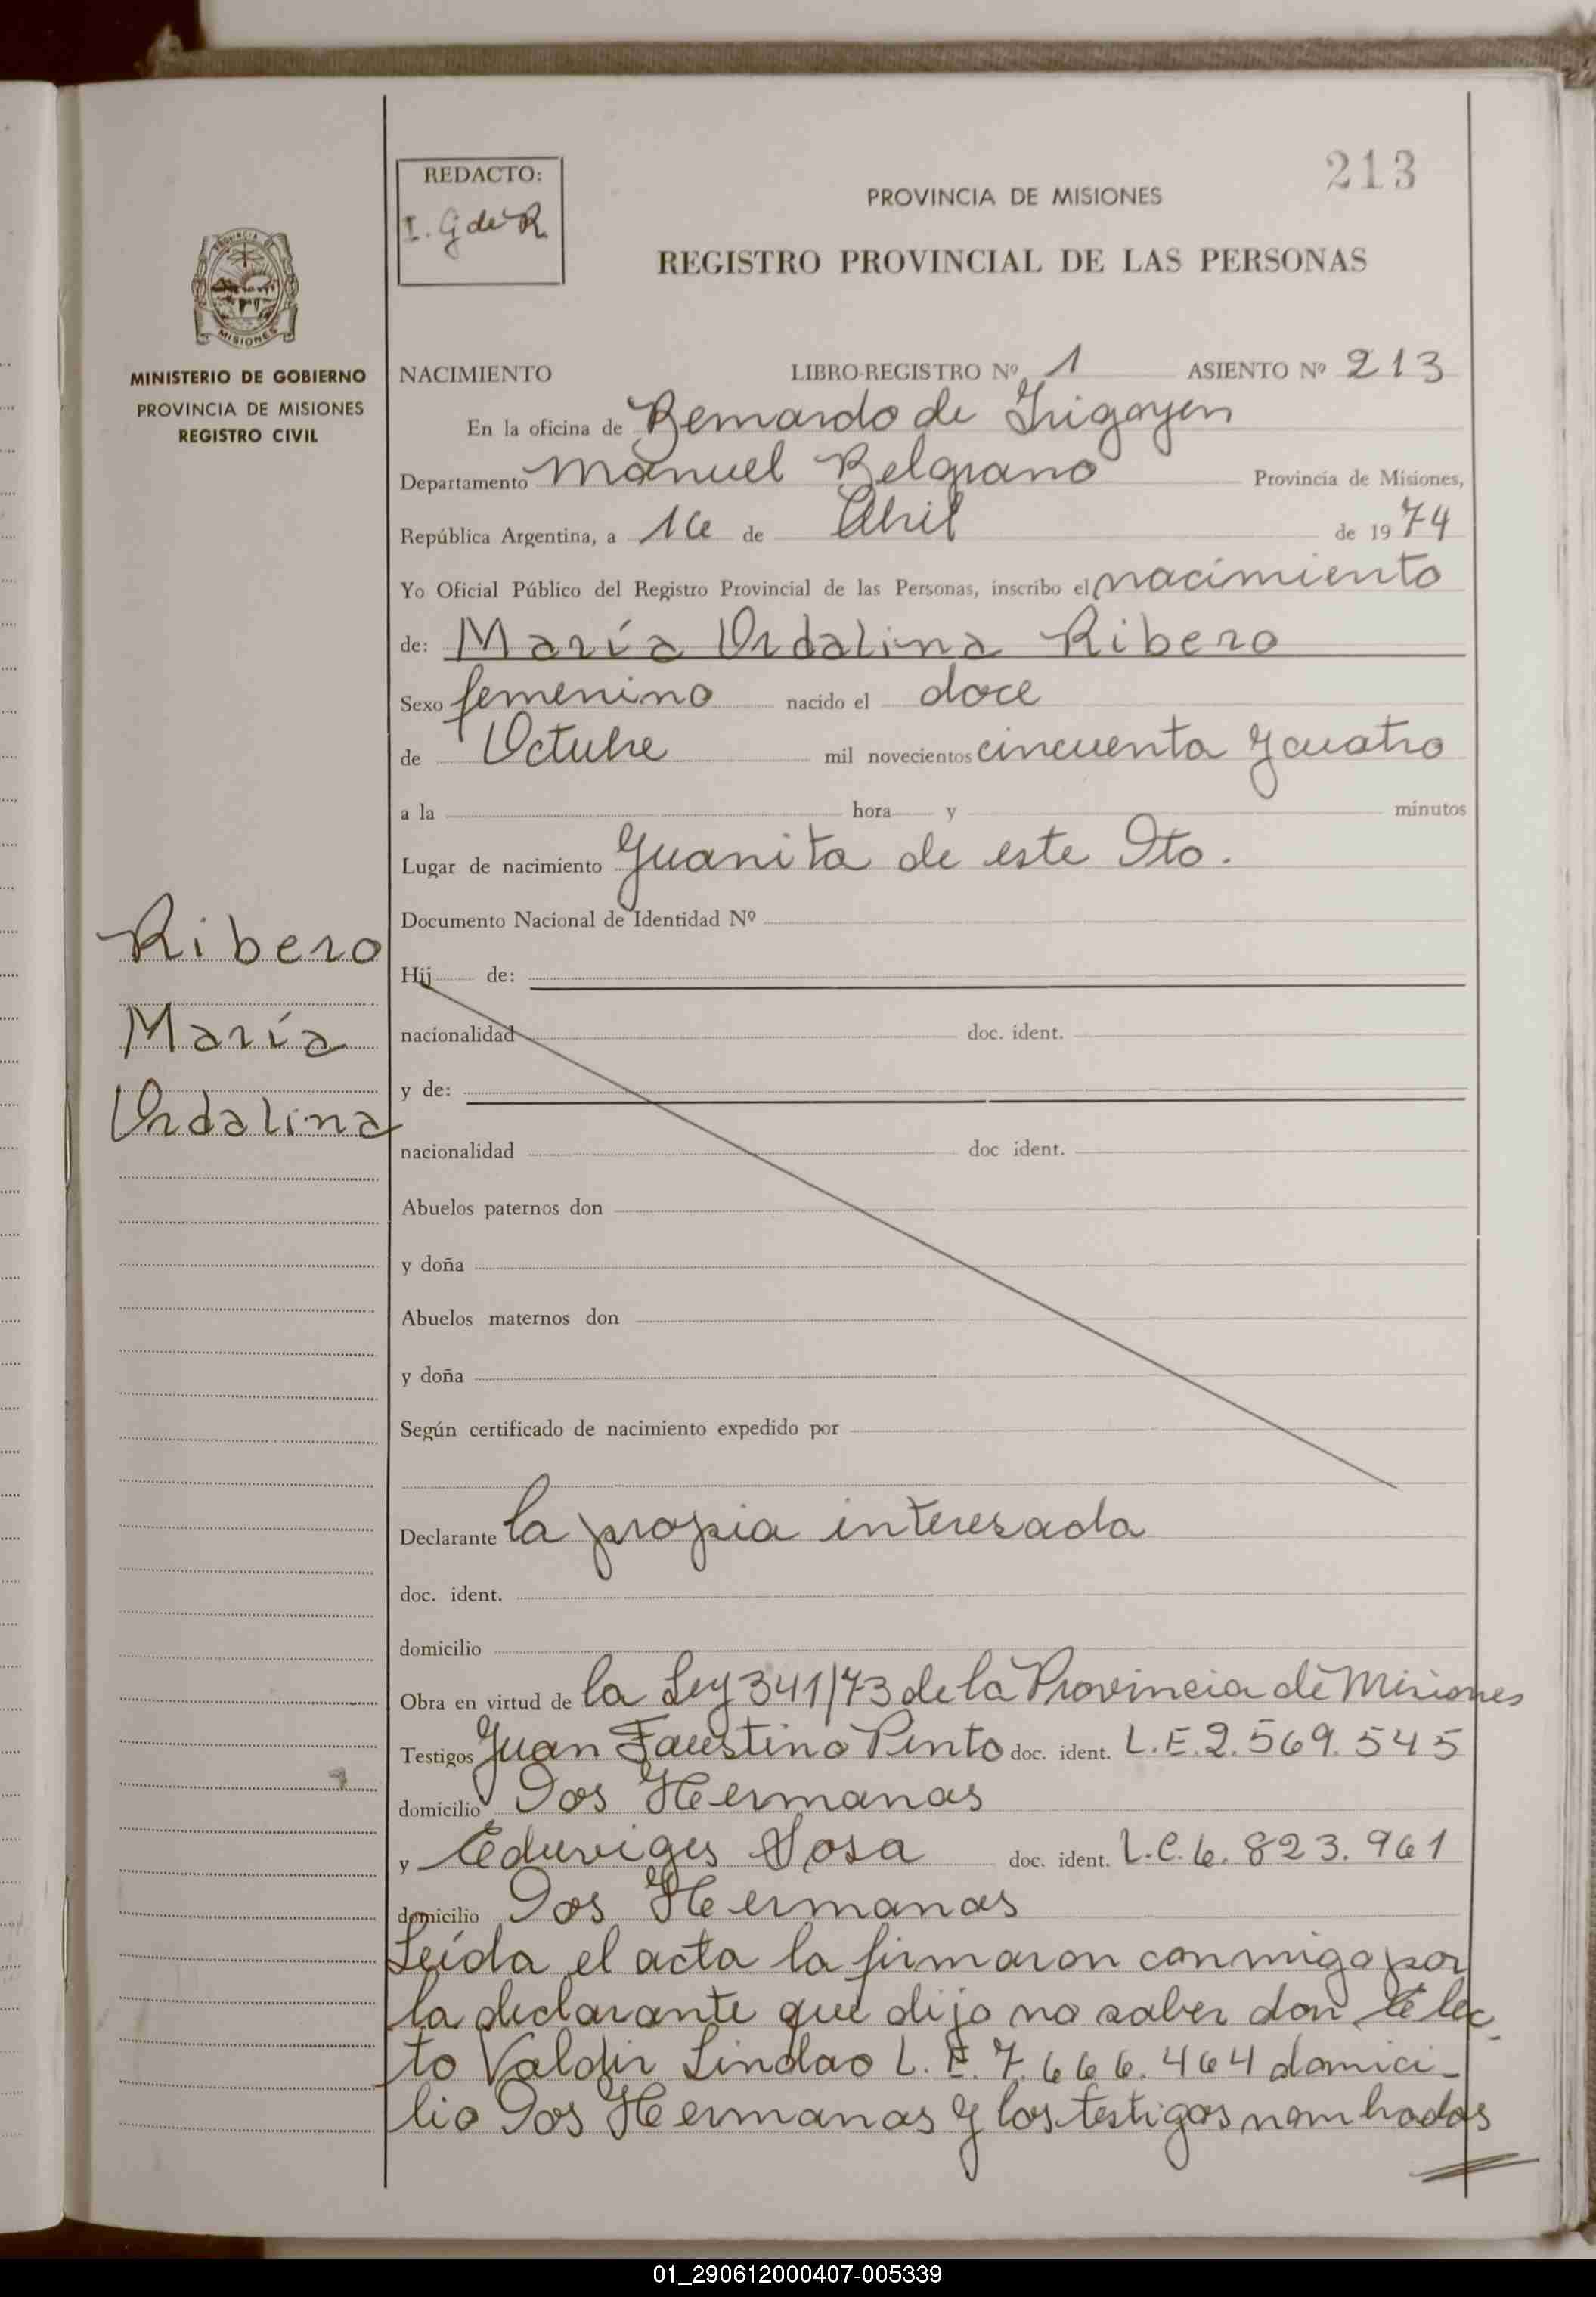 213
REDACTO:
I. G de R.
PROVINCIA DE MISIONES
REGISTRO PROVINCIAL DE LAS PERSONAS
PROVINCIA DE
MISIONES
MINISTERIO DE GOBIERNO
PROVINCIA DE MISIONES
REGISTRO CIVIL
NACIMIENTO LIBRO-REGISTRO Nº 1 ASIENTO Nº 213
En la oficina de Bernardo de Irigoyen
Departamento Manuel Belgrano Provincia de Misiones,
República Argentina, a 16 de Abril de 1974
Yo Oficial Público del Registro Provincial de las Personas, inscribo el nacimiento
de: María Ordalina Ribero
Sexo femenino nacido el doce
de Octubre mil novecientos cincuenta y cuatro
a la hora y minutos
Lugar de nacimiento Juanita de este Dto.
Documento Nacional de Identidad Nº
Ribero
María
Ordalina
Hij de:
nacionalidad doc. ident.
y de:
nacionalidad doc ident.
Abuelos paternos don
y doña
Abuelos maternos don
y doña
Según certificado de nacimiento expedido por
Declarante la propia interesada
doc. ident.
domicilio
Obra en virtud de la Ley 341/73 de la Provincia de Misiones
Testigos Juan Faustino Pinto doc. ident. L.E. 2.569.545
domicilio Dos Hermanas
y Eduviges Sosa doc. ident. L.C. 6.823.961
domicilio Dos Hermanas
Leída el acta la firmaron conmigo por
la declarante que dijo no saber don
Valdir Lindao L.E. 7.666.464 domici-
lio Dos Hermanas y los testigos nombrados
01_290612000407-005339